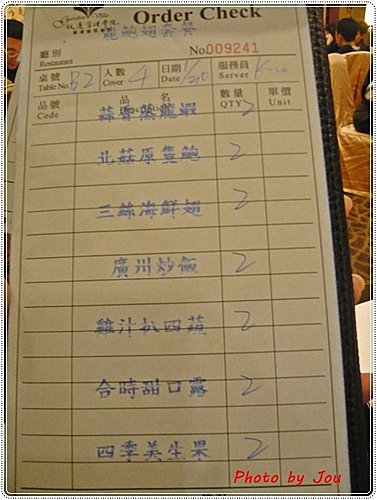 Order Check
龍鮑翅套餐
廳別
Restaurant
No 009241
桌號
Table No. B2
人數
Cover 4
日期
Date 1/20
服務員
Server
品號
Code
品名
數量
QTY
單價
Unit
蒜香蒸龍蝦 2
北菇原隻鮑 2
三絲海鮮翅 2
廣州炒飯 2
雞汁扒四蔬 2
合時甜口露 2
四季美生果 2
Photo by Jou